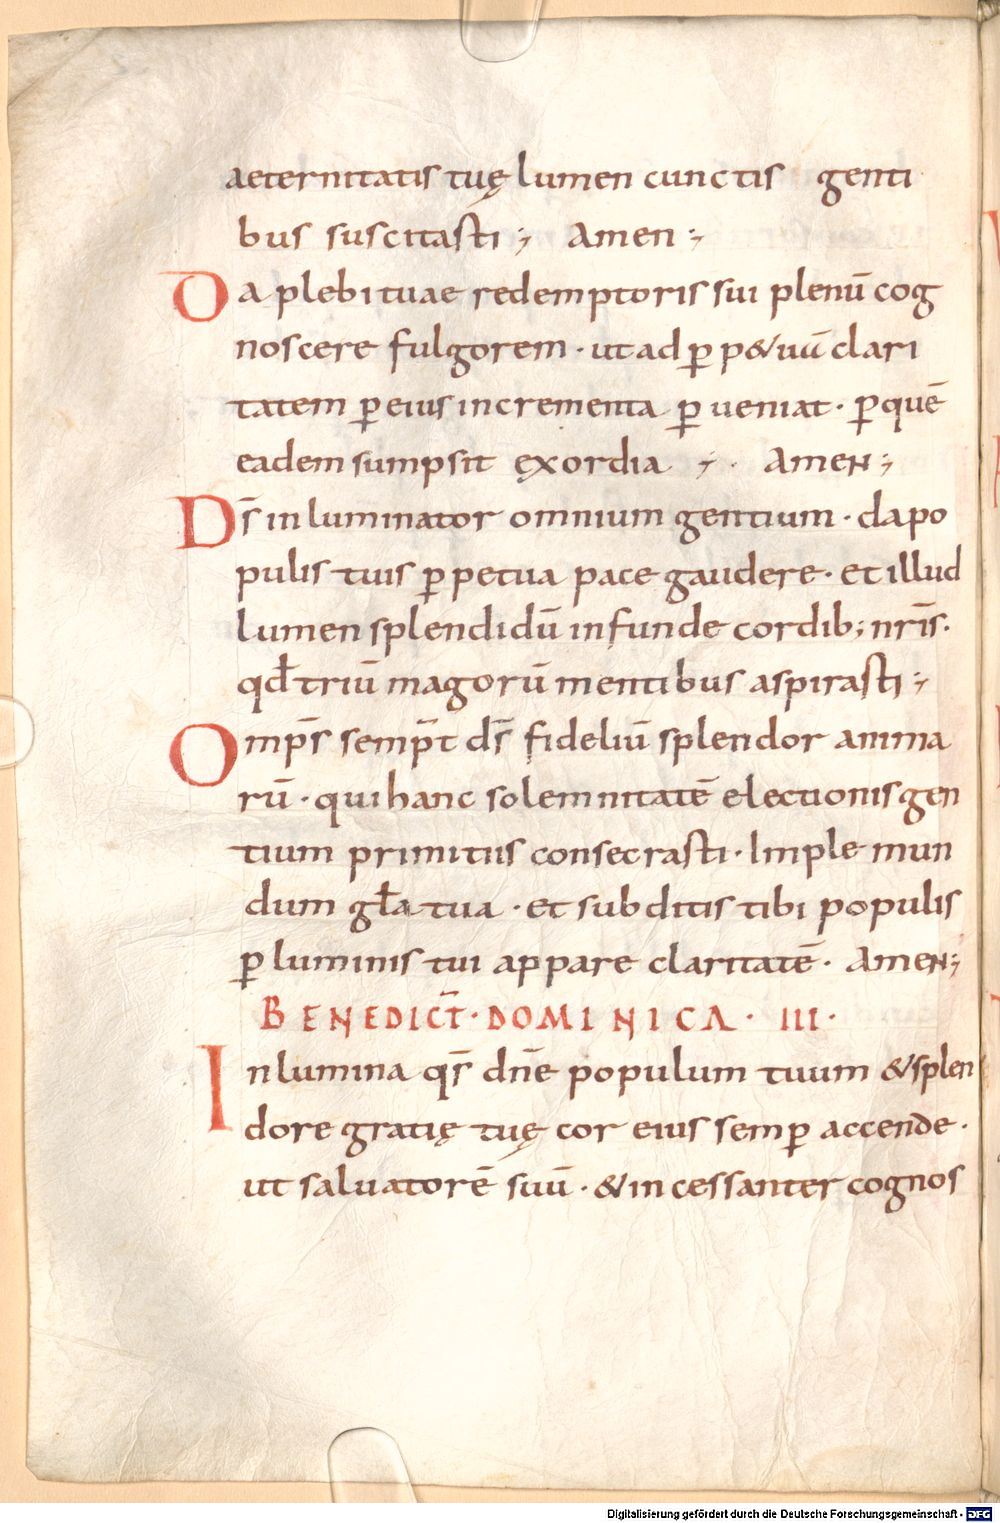 aeternitatis tuę lumen cunctis genti
bus suscitasti ; Amen ;
Da plebi tuae redemptoris sui plenū cog
noscere fulgorem · ut ad ꝑp&uū clari
tatem ꝑ eius incrementa ꝑueniat · ꝑ quē
eadem sumpsit exordia ; · Amen ;
Ds̄ inluminator omnium gentium · da po
pulis tuis ꝑpetua pace gaudere · et illud
lumen splendidū infunde cordib; nr̄is ·
qd̄ triū magorū mentibus aspirasti ;
Omp̄s semp̄t ds̄ fideliū splendor anima
rū · qui hanc solemnitatē electionis gen
tium primitiis consecrasti · Imple mun
dum gl̄a tua · et subditis tibi populis
ꝑ luminis tui appare claritatē · Amen ;
BENEDICT̄ · DOMINICA · III ·
Inlumina qs̄ dn̄e populum tuum & splen
dore gratię tuę cor eius semꝑ accende ·
ut saluatorē suū · & incessanter cognos
Digitalisierung gefördert durch die Deutsche Forschungsgemeinschaft - DFG